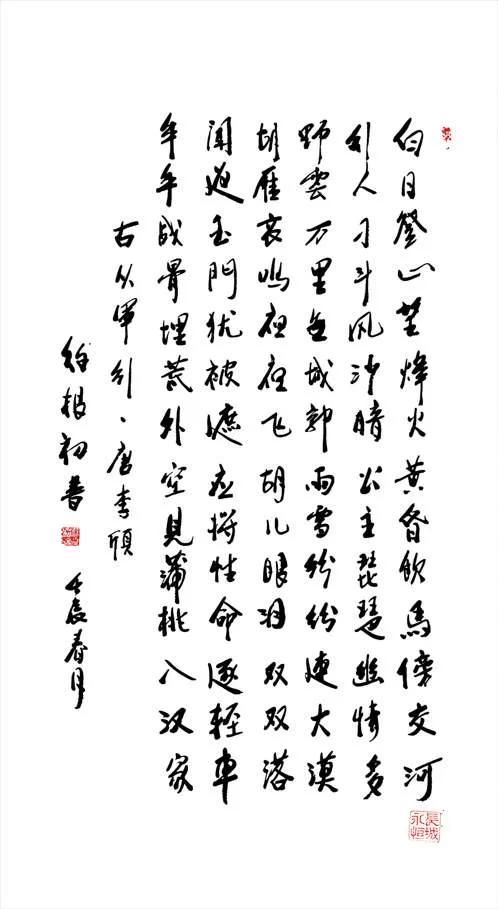 白日登山望烽火黄昏飲馬傍交河
行人刁斗风沙暗公主琵琶幽情多
野雲万里無城郭雨雪纷纷連大漠
胡雁哀鸣夜夜飞胡儿眼泪双双落
闻道玉門犹被遮应将性命逐輕車
年年战骨埋荒外空見蒲桃入汉家
古从軍行、唐李颀
徐根初書
壬辰春月
長城永恒